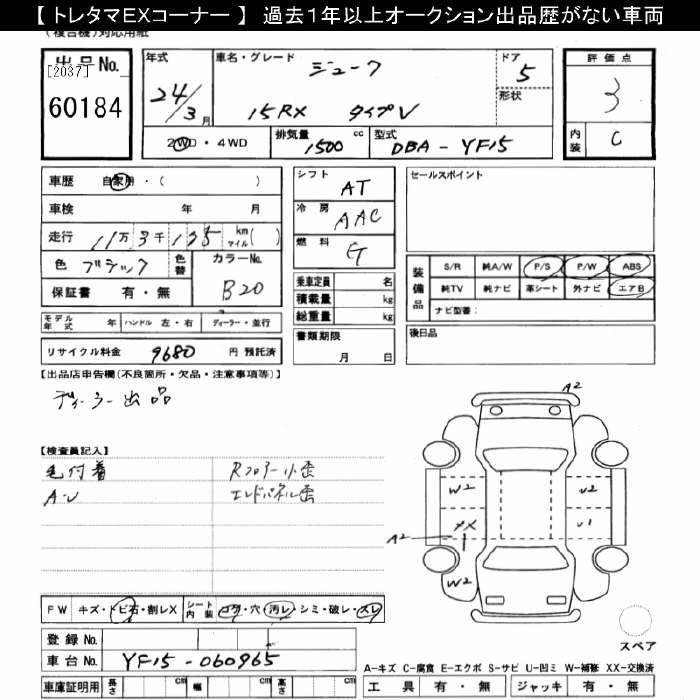 【 トレタマEXコーナー 】 過去１年以上オークション出品歴がない車両
(複合機)対応用紙
出品No.
[2037]
60184
年式 24/3月
車名・グレード ジューク
15RX タイプV
ドア 5
形状
2WD・4WD
排気量 1500 cc
型式 DBA - YF15
評価点 3
内装 C
車歴 自家用・( )
車検 年 月
走行 11万3千135 km マイル( )
色 ブラック 色替
カラーNo. B20
保証書 有・無
モデル年式 年 ハンドル 左・右 ディーラー・並行
リサイクル料金 9680 円 預託済
シフト AT
冷房 AAC
燃料 G
乗車定員 名
積載量 kg
総重量 kg
書類期限
月 日
セールスポイント
装備品
S/R 純A/W P/S P/W ABS
純TV 純ナビ 革シート 外ナビ エアB
ナビ型番:
後日品
【出品店申告欄(不良箇所・欠品・注意事項等)】
ディーラー出品
【検査員記入】
毛付着 Rフロアー小歪
A・U エンドパネル歪
A2
W2
U2
XX
U1
A2
W2
スペア
FW キズ・トビ石・割レX シート内装 コゲ・穴・汚レ・シミ・破レ・スレ
登録No.
車台No. YF15-060965
車庫証明用 長さ cm 幅 cm 高さ cm
A―キズ C―腐食 E―エクボ S―サビ U―凹ミ W―補修 XX―交換済
工具 有・無 ジャッキ 有・無